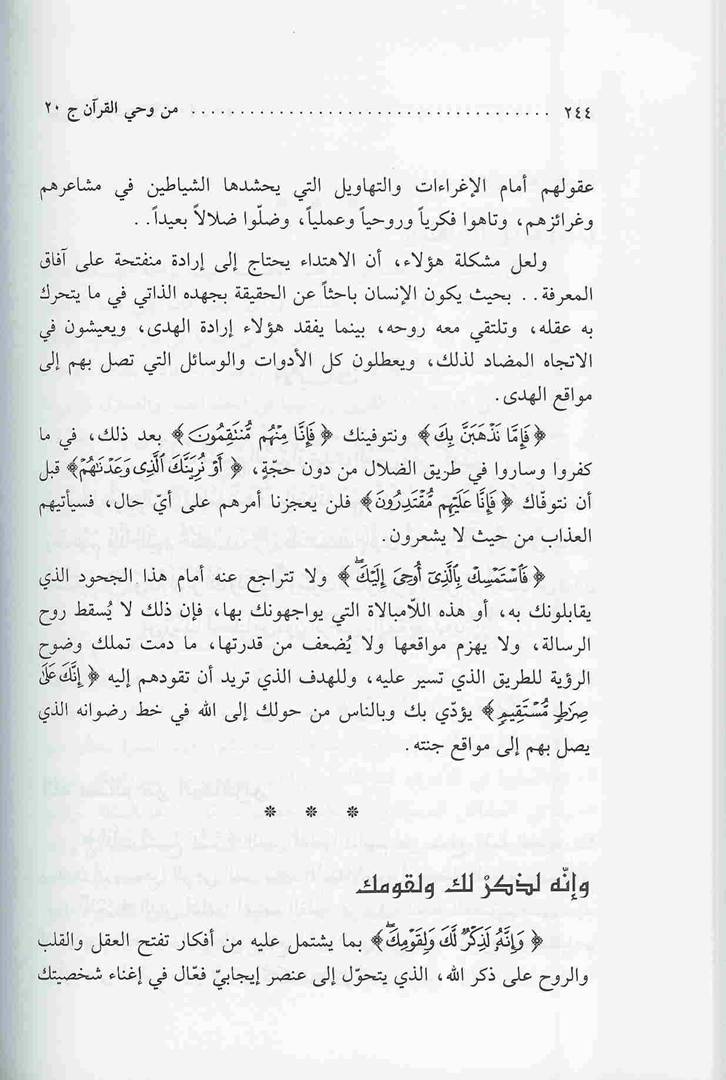 ٢٤٤ .................................... من وحي القرآن ج ٢٠
عقولهم أمام الإغراءات والتهاويل التي يحشدها الشياطين في مشاعرهم
وغرائزهم، وتاهوا فكرياً وروحياً وعملياً، وضلّوا ضلالاً بعيداً..
ولعل مشكلة هؤلاء، أن الاهتداء يحتاج إلى إرادة منفتحة على آفاق
المعرفة.. بحيث يكون الإنسان باحثاً عن الحقيقة بجهده الذاتي في ما يتحرك
به عقله، وتلتقي معه روحه، بينما يفقد هؤلاء إرادة الهدى، ويعيشون في
الاتجاه المضاد لذلك، ويعطلون كل الأدوات والوسائل التي تصل بهم إلى
مواقع الهدى.
﴿فَإِمَّا نَذْهَبَنَّ بِكَ﴾ ونتوفينك ﴿فَإِنَّا مِنْهُم مُّنتَقِمُونَ﴾ بعد ذلك، في ما
كفروا وساروا في طريق الضلال من دون حجّة، ﴿أَوْ نُرِيَنَّكَ ٱلَّذِى وَعَدْنَٰهُمْ﴾ قبل
أن نتوفّاك ﴿فَإِنَّا عَلَيْهِم مُّقْتَدِرُونَ﴾ فلن يعجزنا أمرهم على أيّ حال، فسيأتيهم
العذاب من حيث لا يشعرون.
﴿فَٱسْتَمْسِكْ بِٱلَّذِىٓ أُوحِىَ إِلَيْكَ ۖ﴾ ولا تتراجع عنه أمام هذا الجحود الذي
يقابلونك به، أو هذه اللّامبالاة التي يواجهونك بها، فإن ذلك لا يُسقط روح
الرسالة، ولا يهزم مواقعها ولا يُضعف من قدرتها، ما دمت تملك وضوح
الرؤية للطريق الذي تسير عليه، وللهدف الذي تريد أن تقودهم إليه ﴿إِنَّكَ عَلَىٰ
صِرَٰطٍ مُّسْتَقِيمٍ﴾ يؤدّي بك وبالناس من حولك إلى الله في خط رضوانه الذي
يصل بهم إلى مواقع جنته.
* * *
وإنّه لذكرْ لك ولقومك
﴿وَإِنَّهُۥ لَذِكْرٌ لَّكَ وَلِقَوْمِكَ ۖ﴾ بما يشتمل عليه من أفكار تفتح العقل والقلب
والروح على ذكر الله، الذي يتحوّل إلى عنصر إيجابيّ فعّال في إغناء شخصيتك